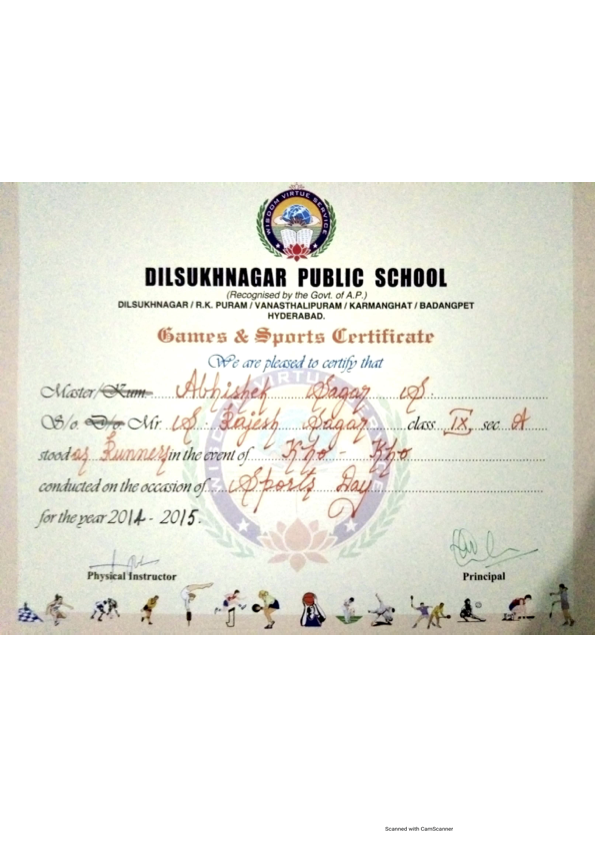 WISDOM VIRTUE SERVICE
DILSUKHNAGAR PUBLIC SCHOOL
(Recognised by the Govt. of A.P.)
DILSUKHNAGAR / R.K. PURAM / VANASTHALIPURAM / KARMANGHAT / BADANGPET
HYDERABAD.
Games & Sports Certificate
We are pleased to certify that
Master/Kum. Abhishek Sagar S
S/o. D/o. Mr. S. Rajesh Sagar class IX, sec A
stood as Runners in the event of Kho - Kho
conducted on the occasion of Sports Day
for the year 2014 - 2015.
Physical Instructor Principal
Scanned with CamScanner